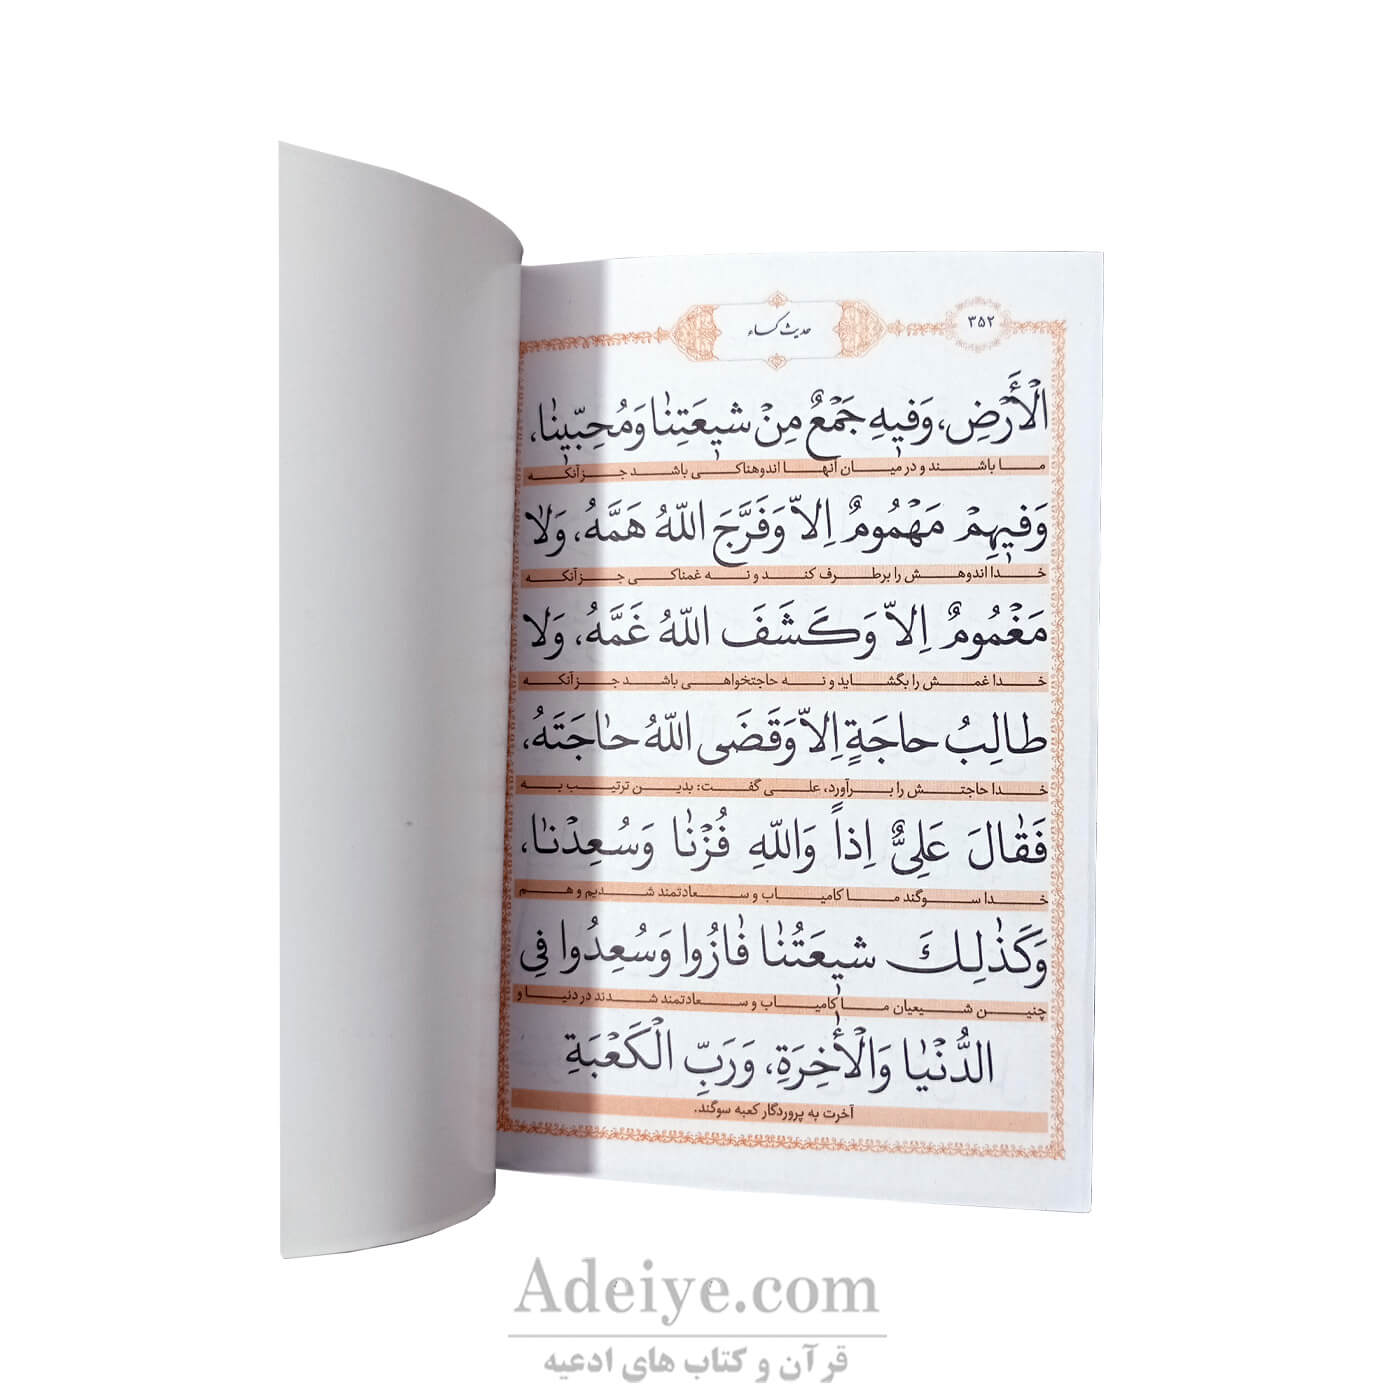 ۳۵۲
حدیث کساء
الْأَرْضِ، وَفیٖهِ جَمْعٌ مِنْ شیٖعَتِنٰا وَمُحِبّیٖنٰا،
مـا باشـند و در میـان آنهـا اندوهناکـی باشـد جـز آنکه
وَفیٖهِمْ مَهْمُومٌ اِلاّٰ وَفَرَّجَ اللّهُ هَمَّهُ، وَلاٰ
خـدا اندوهـش را برطـرف کنـد و نـه غمناکـی جـز آنکـه
مَغْمُومٌ اِلاّٰ وَكَشَفَ اللّهُ غَمَّهُ، وَلاٰ
خـدا غمـش را بگشاید و نـه حاجتخواهـی باشـد جـز آنکـه
طالِبُ حاجَةٍ اِلاّٰ وَقَضَی اللّهُ حاٰجَتَهُ،
خـدا حاجتـش را بـرآورد، علـی گفـت: بدیـن ترتیـب بـه
فَقٰالَ عَلِیٌّ اِذاً وَاللّهِ فُزْنٰا وَسُعِدْنٰا،
خـدا سـوگند مـا کامیـاب و سـعادتمند شـدیم و هـم
وَكَذٰلِكَ شیٖعَتُنٰا فٰازُوا وَسُعِدُوا فِی
چنیـن شـیعیان مـا کامیـاب و سـعادتمند شـدند در دنیـا و
الدُّنْیٰا وَالْأٰخِرَةِ، وَرَبِّ الْكَعْبَةِ
آخرت به پروردگار کعبه سوگند.
Adeiye.com
قرآن و کتاب های ادعیه